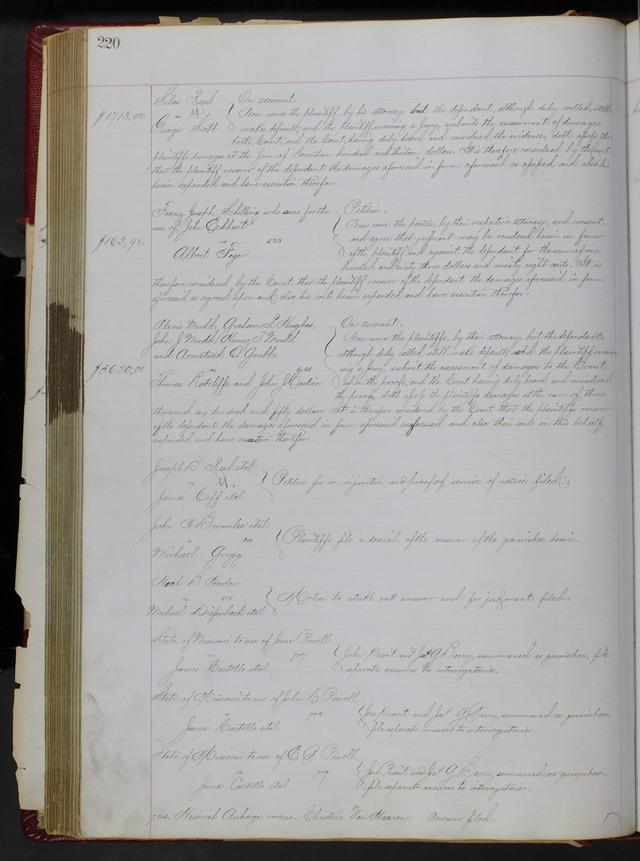 220
Silas Reed On account.
$1713,00 vs Now come the plaintiff, by his attorney but the defendant, although duly called, still
George Scott makes default, and the plaintiff waiving a jury, submits the assessment of damages
to the Court, and the Court, having duly heard and considered the evidence, doth assess the
plaintiffs damages at the sum of Seventeen hundred and thirteen dollars. It is therefore considered by the Court
that the plaintiff recover of the defendant the damages aforesaid in form aforesaid as assessed and also his
herein expended and have execution therefor.
Franz Joseph Schilling who sues for the Petition.
use of John Eckhart Now come the parties, by their respective attorneys, and consent
$163,98. and agree that judgment may be rendered herein in favor
Albert Feger of the plaintiff and against the defendant for the sum of one
hundred and sixty three dollars and ninety eight cents. It is
therefore considered by the Court that the plaintiff recover of the defendant the damages aforesaid in form
aforesaid as agreed upon and also his costs herein expended and have execution therefor.
Alexis Mudd, Graham L Hughes, On account.
John J Mudd, Henry T Mudd Now come the plaintiffs, by their attorneys, but the defendants,
and Armstead O Grubb although duly called still make default, and the plaintiffs waiv
$3650,00 vs ing a jury, submit the assessment of damages to the Court
Thomas Ratcliffe and John J upon the proofs, and the Court having duly heard and considered
the proofs, doth assess the plaintiffs damages at the sum of three
thousand six hundred and fifty dollars. It is therefore considered by the Court that the plaintiffs recover
of the defendants the damages aforesaid in form aforesaid assessed and also their costs in this behalf
expended and have execution therefor.
Joseph B Reed et al
vs Petition for an injunction and proof of service of notice filed.
James Goff et al
John A Brownlee et al
vs Plaintiffs file a denial of the answer of the garnishee herein.
Michael Gregg
Noah B
vs Motion to strike out answer and for judgment filed.
Michael Diefenbach et al
State of Missouri to use of Jane Powell
vs 707 John Bvant and Jas G Berry, summoned as garnishees, file
James Castello et al separate answers to interrogatories.
State of Missouri to use of John C Powell
708 and Jas G Berry, summoned as garnishees,
James Castello et al file separate answers to interrogatories.
State of Missouri to use of E A Powell
vs 709 and Jas G Berry, summoned as garnishees,
James Castello et al file separate answers to interrogatories.
702. Heinrich versus Christine Van Answer filed.